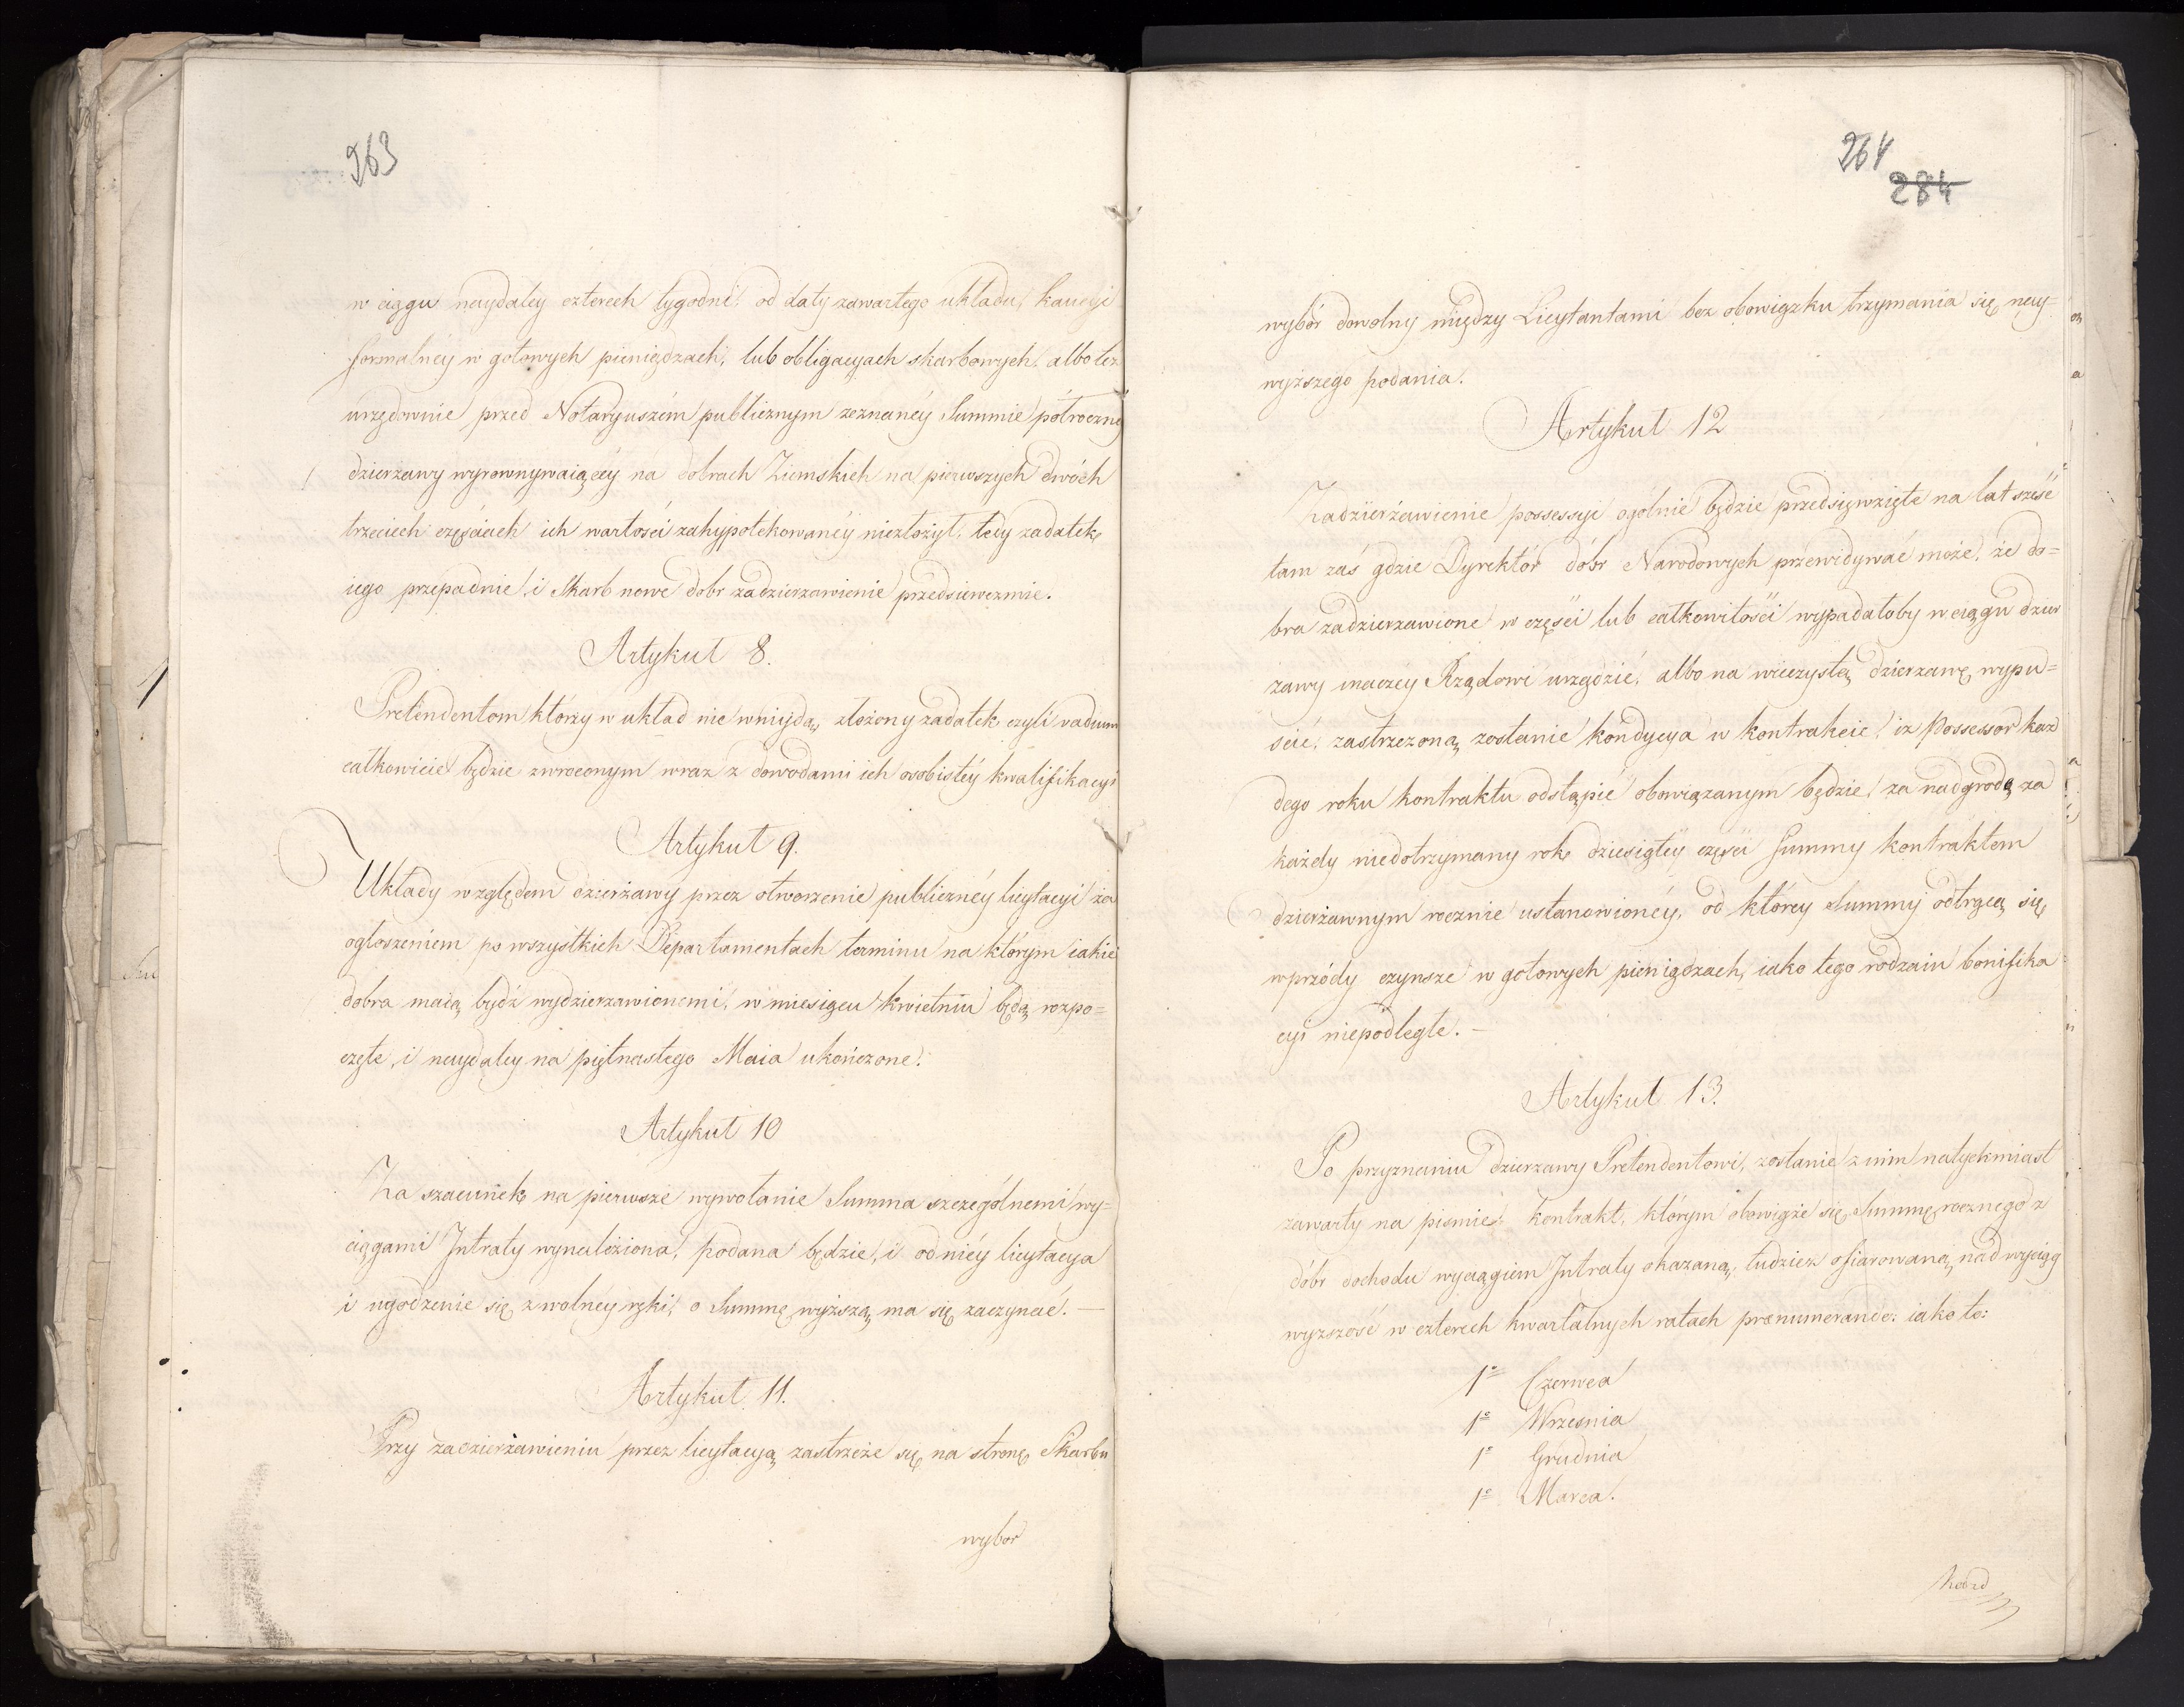 263
w ciągu naydaley czterech tygodni od daty zawartego układu, kaucyi
formalnéy w gotowych pieniądzach, lub obligacyach skarbowych, albo też
urzędownie przed Notaryuszem publicznym zeznanéy Summie półroczney
dzierżawy wyrownywaiącéy na dobrach Ziemskich na pierwszych dwóch
trzecich częściach ich wartości zahypotekowanéy niezłożył, tedy zadatek
iego przepadnie, i Skarb nowe dobr zadzierzawienie przedsiewezmie.
Artykuł 8.
Pretendentom którzy w układ nie wniydą, złożony zadatek czyli vadium
całkowicie będzie zwroconym wraz z dowodami ich osobistéy kwalifikacyi
Artykuł 9.
Układy względem dzierżawy przez otworzenie publicznéy licytacyi za
ogłoszeniem po wszystkich Departamentach terminu na którym iakie
dobra maią bydź wydzierzawionemi, w miesiącu kwietniu będą rozpo=
częte, i naydaley na piętnastego Maia ukończone.
Artykuł 10
Za szacunek na pierwsze wywołanie Summa szczególnemi wy=
ciągami Jntraty wynaleziona, podana będzie, i od niéy licytacya
i ugodzenie się z wolnéy ręki, o Summę wyższą ma się zaczynać. —
Artykuł 11.
Przy zadzierżawieniu przez licytacyą zastrzeże się na stronę Skarbu
wybor
264
284
wybór dowolny między Licytantami bez obowiązku trzymania się nay=
wyższego podania.
Artykuł 12
Zadzierżawienie possessyi ogólnie będzie przedsięwzięte na lat sześć
tam zaś gdzie Dyrektór dóbr Narodowych przewidywać może, że do=
bra zadzierzawione w części lub całkowitości wypadałoby w ciągu dzier
zawy inaczéy Rządowi urządzić, albo na wieczystą dzierzawę wypu=
ścić, zastrzezoną zostanie kondycya w kontrakcie, iz Possessor kaz
dego roku kontraktu odstąpić obowiązanym będzie, za nadgrodą za
każdy niedotrzymany rok dziesiątéy części Summy kontraktem
dzierżawnym rocznie ustanowionéy, od któréy Summy odtrącą się
wprzódy czynsze w gotowych pieniądzach, iako tego rodzaiu bonifika
cyi niepodległe. —
Artykuł 13.
Po przyznaniu dzierzawy Pretendentowi, zostanie z nim natychmiast
zawarty na pismie kontrakt, którym obowiąże się Summę rocznego z
dóbr dochodu wyciągiem Jntraty okazaną, tudziez ofiarowaną nad wyciąg
wyzszość w czterech kwartalnych ratach prænumerando: iako to:
1º Czerwca
1º Wrzesnia
1º Grudnia
1º Marca.